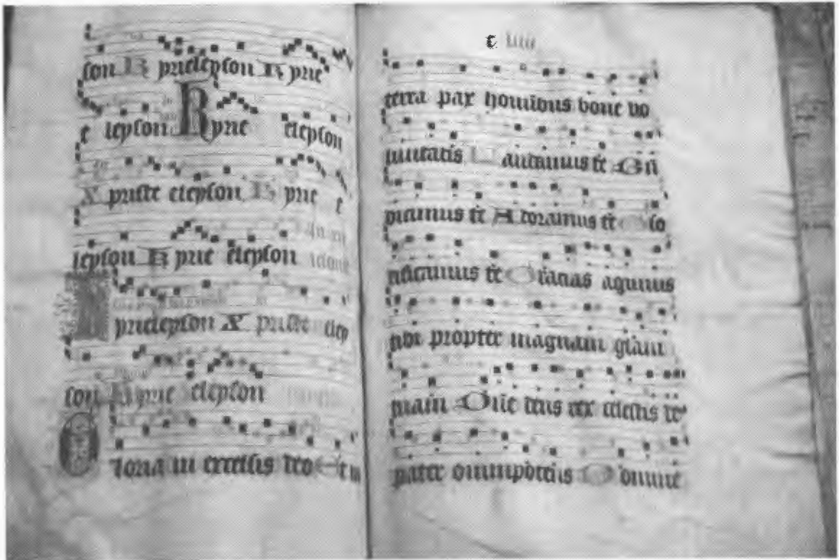 son Kyrieleyson Kyrie
e leyson Kyrie eleyson
Xpriste eleyson Kyrie e
leyson Kyrie eleyson
Kyrieleyson Xpriste eley
son Kyrie eleyson
Gloria in excelsis deo Et in
terra pax hominibus bone vo
luntatis Laudamus te Bn
dicimus te Adoramus te Glo
rificamus te Gracias agimus
tibi propter magnam gliam
tuam Dne deus rex celestis de
pater omnipotens Domine